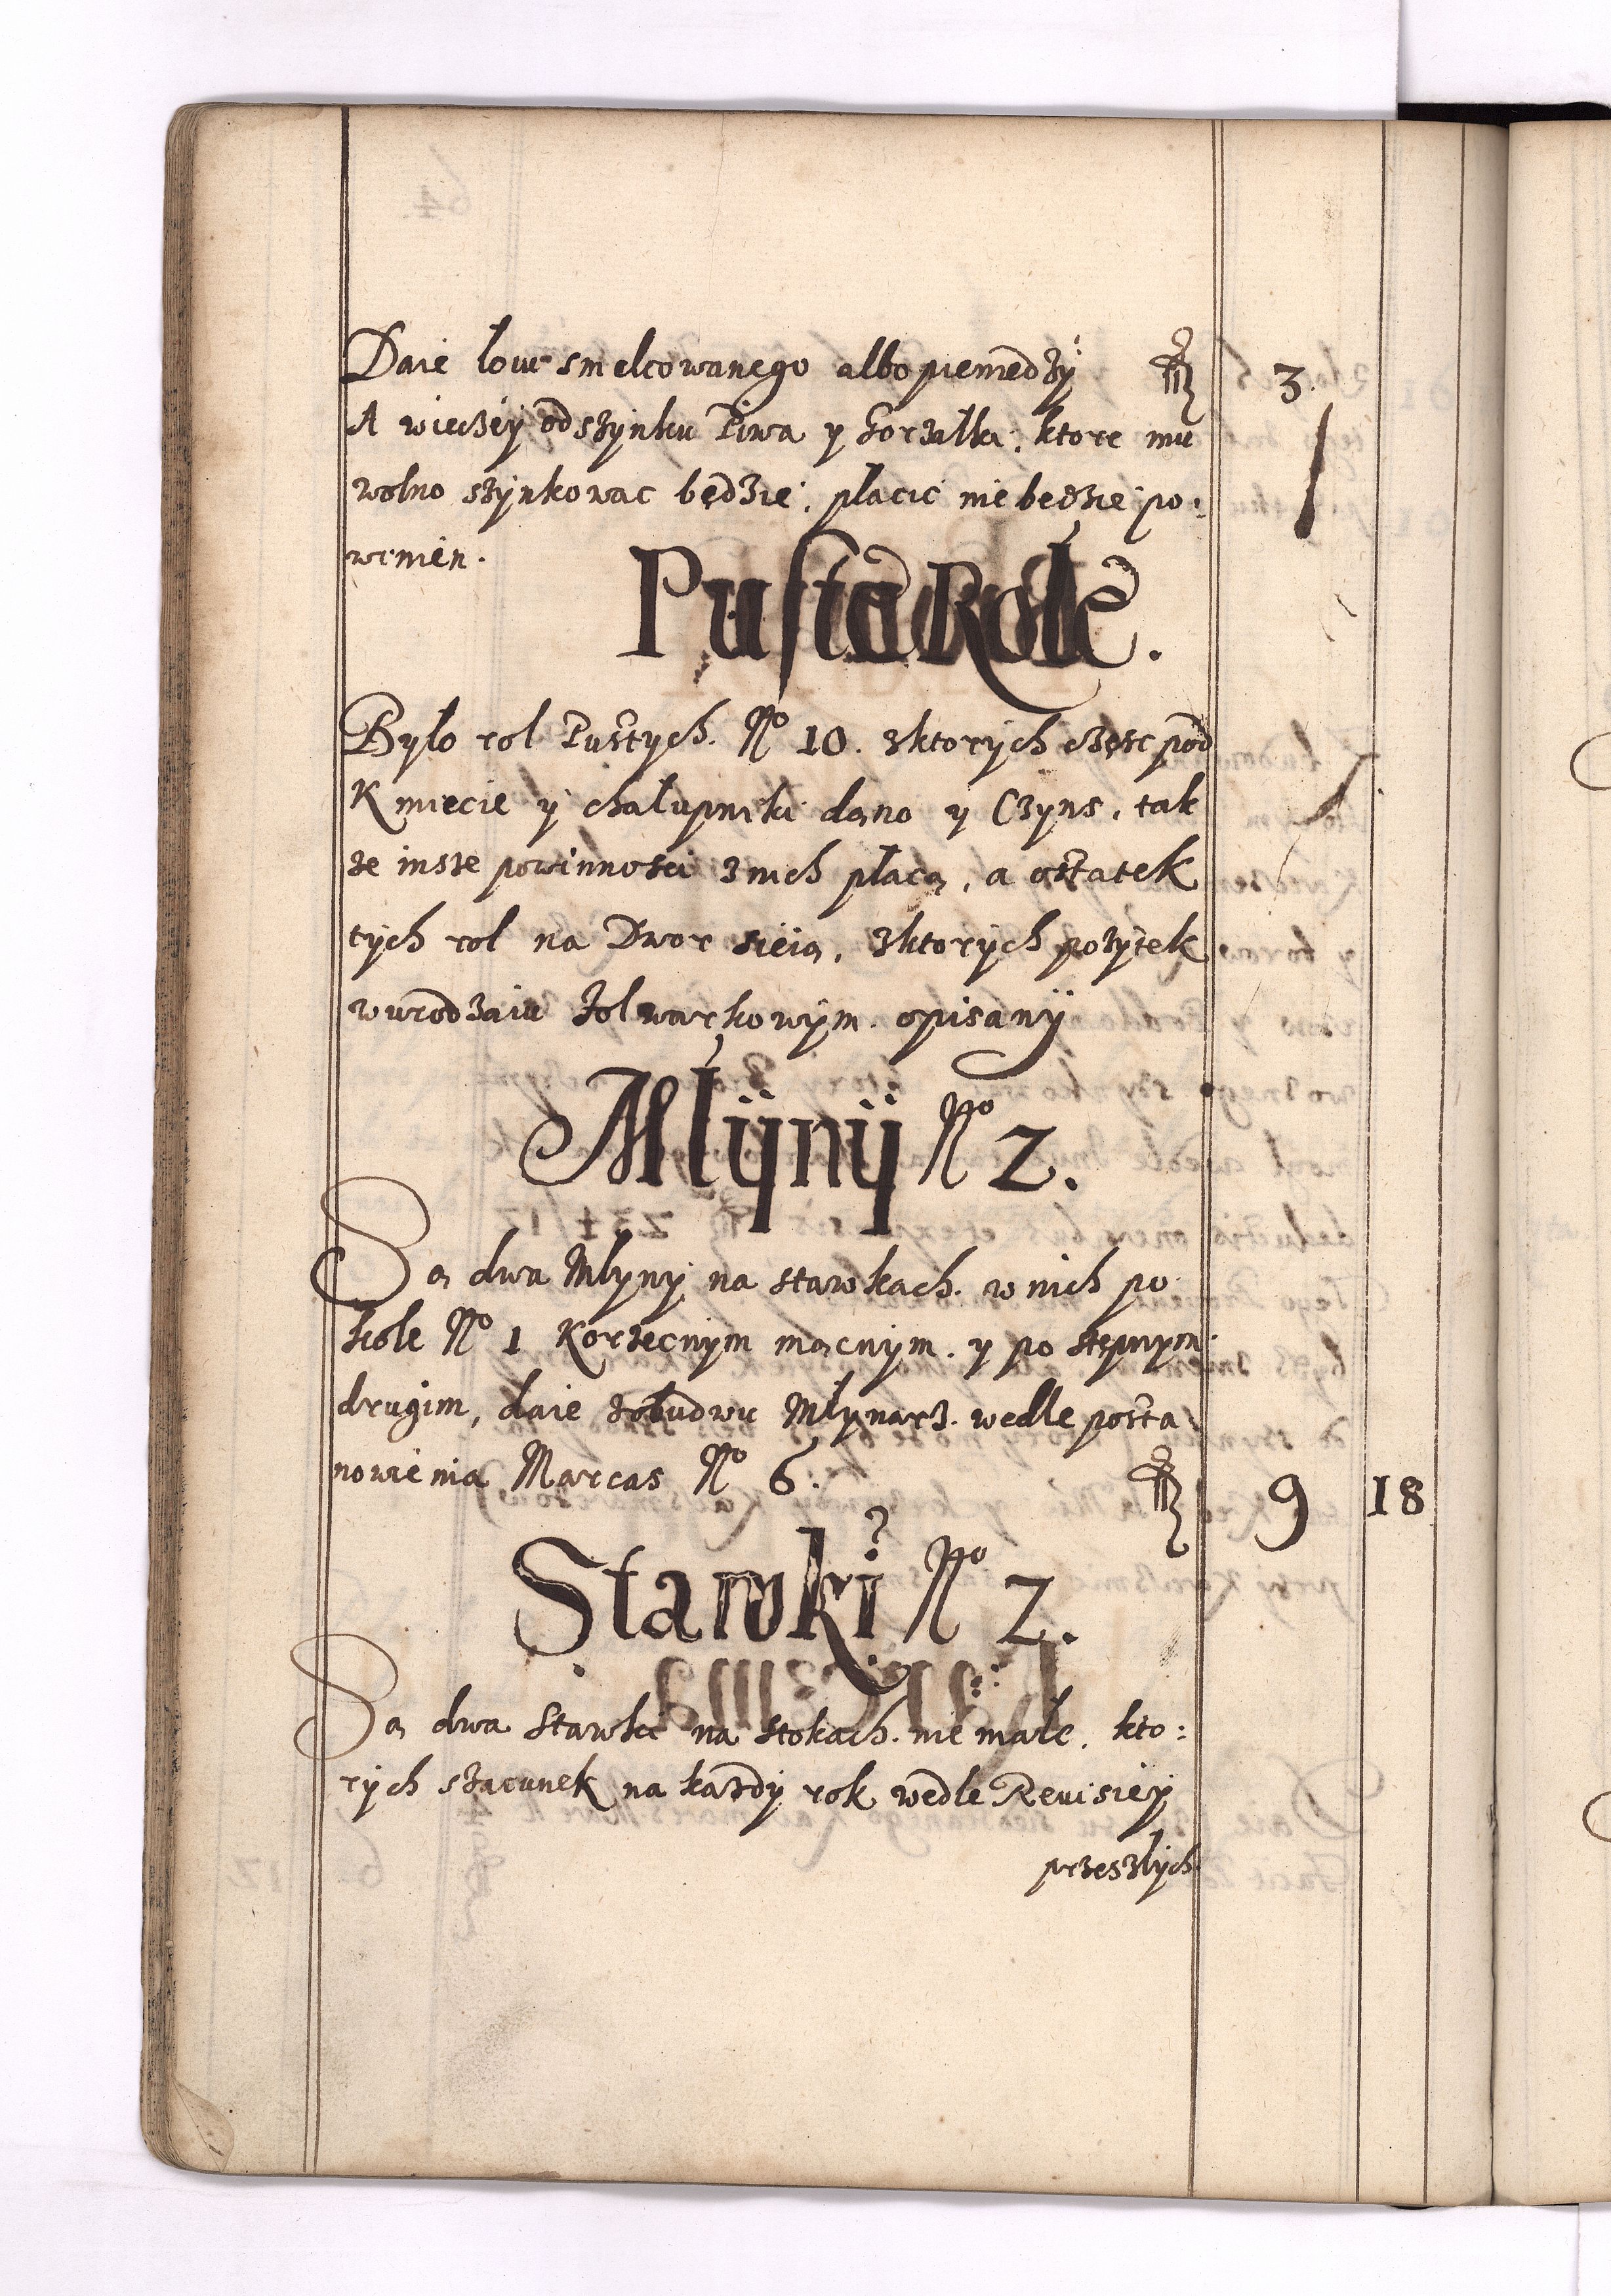 Daie łoiu smelcowanego albo pieniedzy fl 3.
A wieczey od szynku Piwa y Gorzałki, ktore mu
wolno szynkowac będzie, płacić nie będzie po:
winien.
Puste Role.
Było rol Pustych. No 10. z ktorych część pod
Kmiecie y chałupniki dano y Czyns, tak
że insze powinnosci z nich płacą, a ostatek
tych rol na Dwor sieią, z ktorych pozytek
w urodzaiu Folwarkowym. opisany
Młÿnÿ No 2.
Są dwa Młyny na stawkach. w nich po
kole No 1 Korzecnym mącnym. y po stępnym
drugim, daie z obudwu Młynarz. wedle posta
nowienia Marcas No 6. fl 9 18
Stawki No 2.
Są dwa Stawki na stokach. nie małe, kto:
rych szacunek na kazdy rok wedle Reuisiey
przeszłych